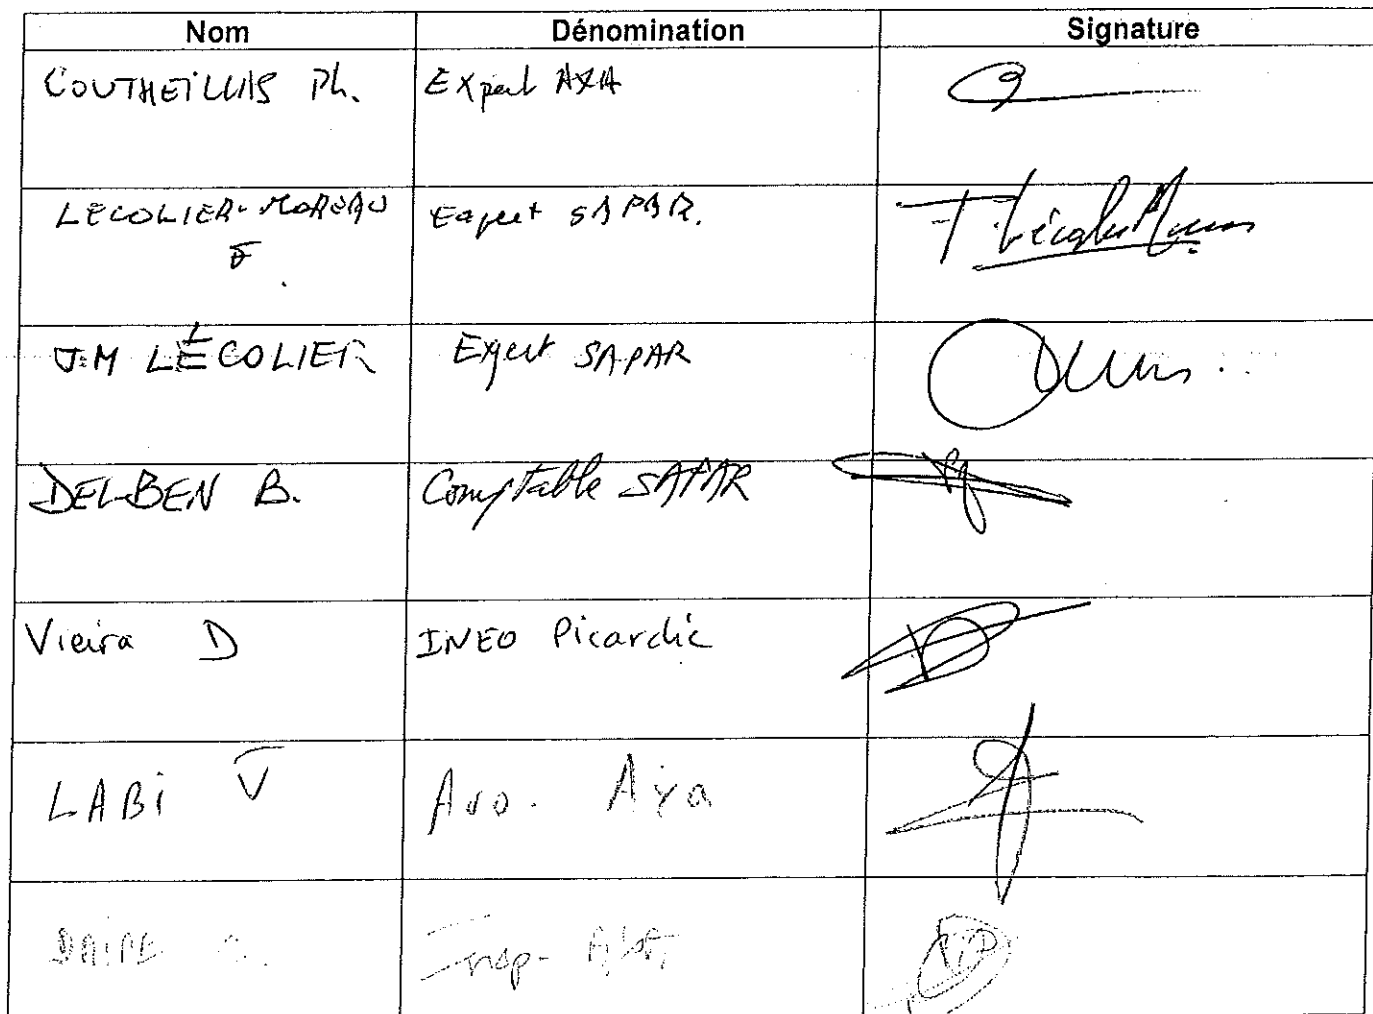 Nom Dénomination Signature
COUTHEILLAS Ph. Expert AXA
LECOLIER-MOREAU Expert SAPAR.
F.
J.M LÉCOLIER Expert SAPAR
DELBEN B. Comptable SAPAR
Vieira D INEO Picardie
LABi V Avo. Axa
Insp-